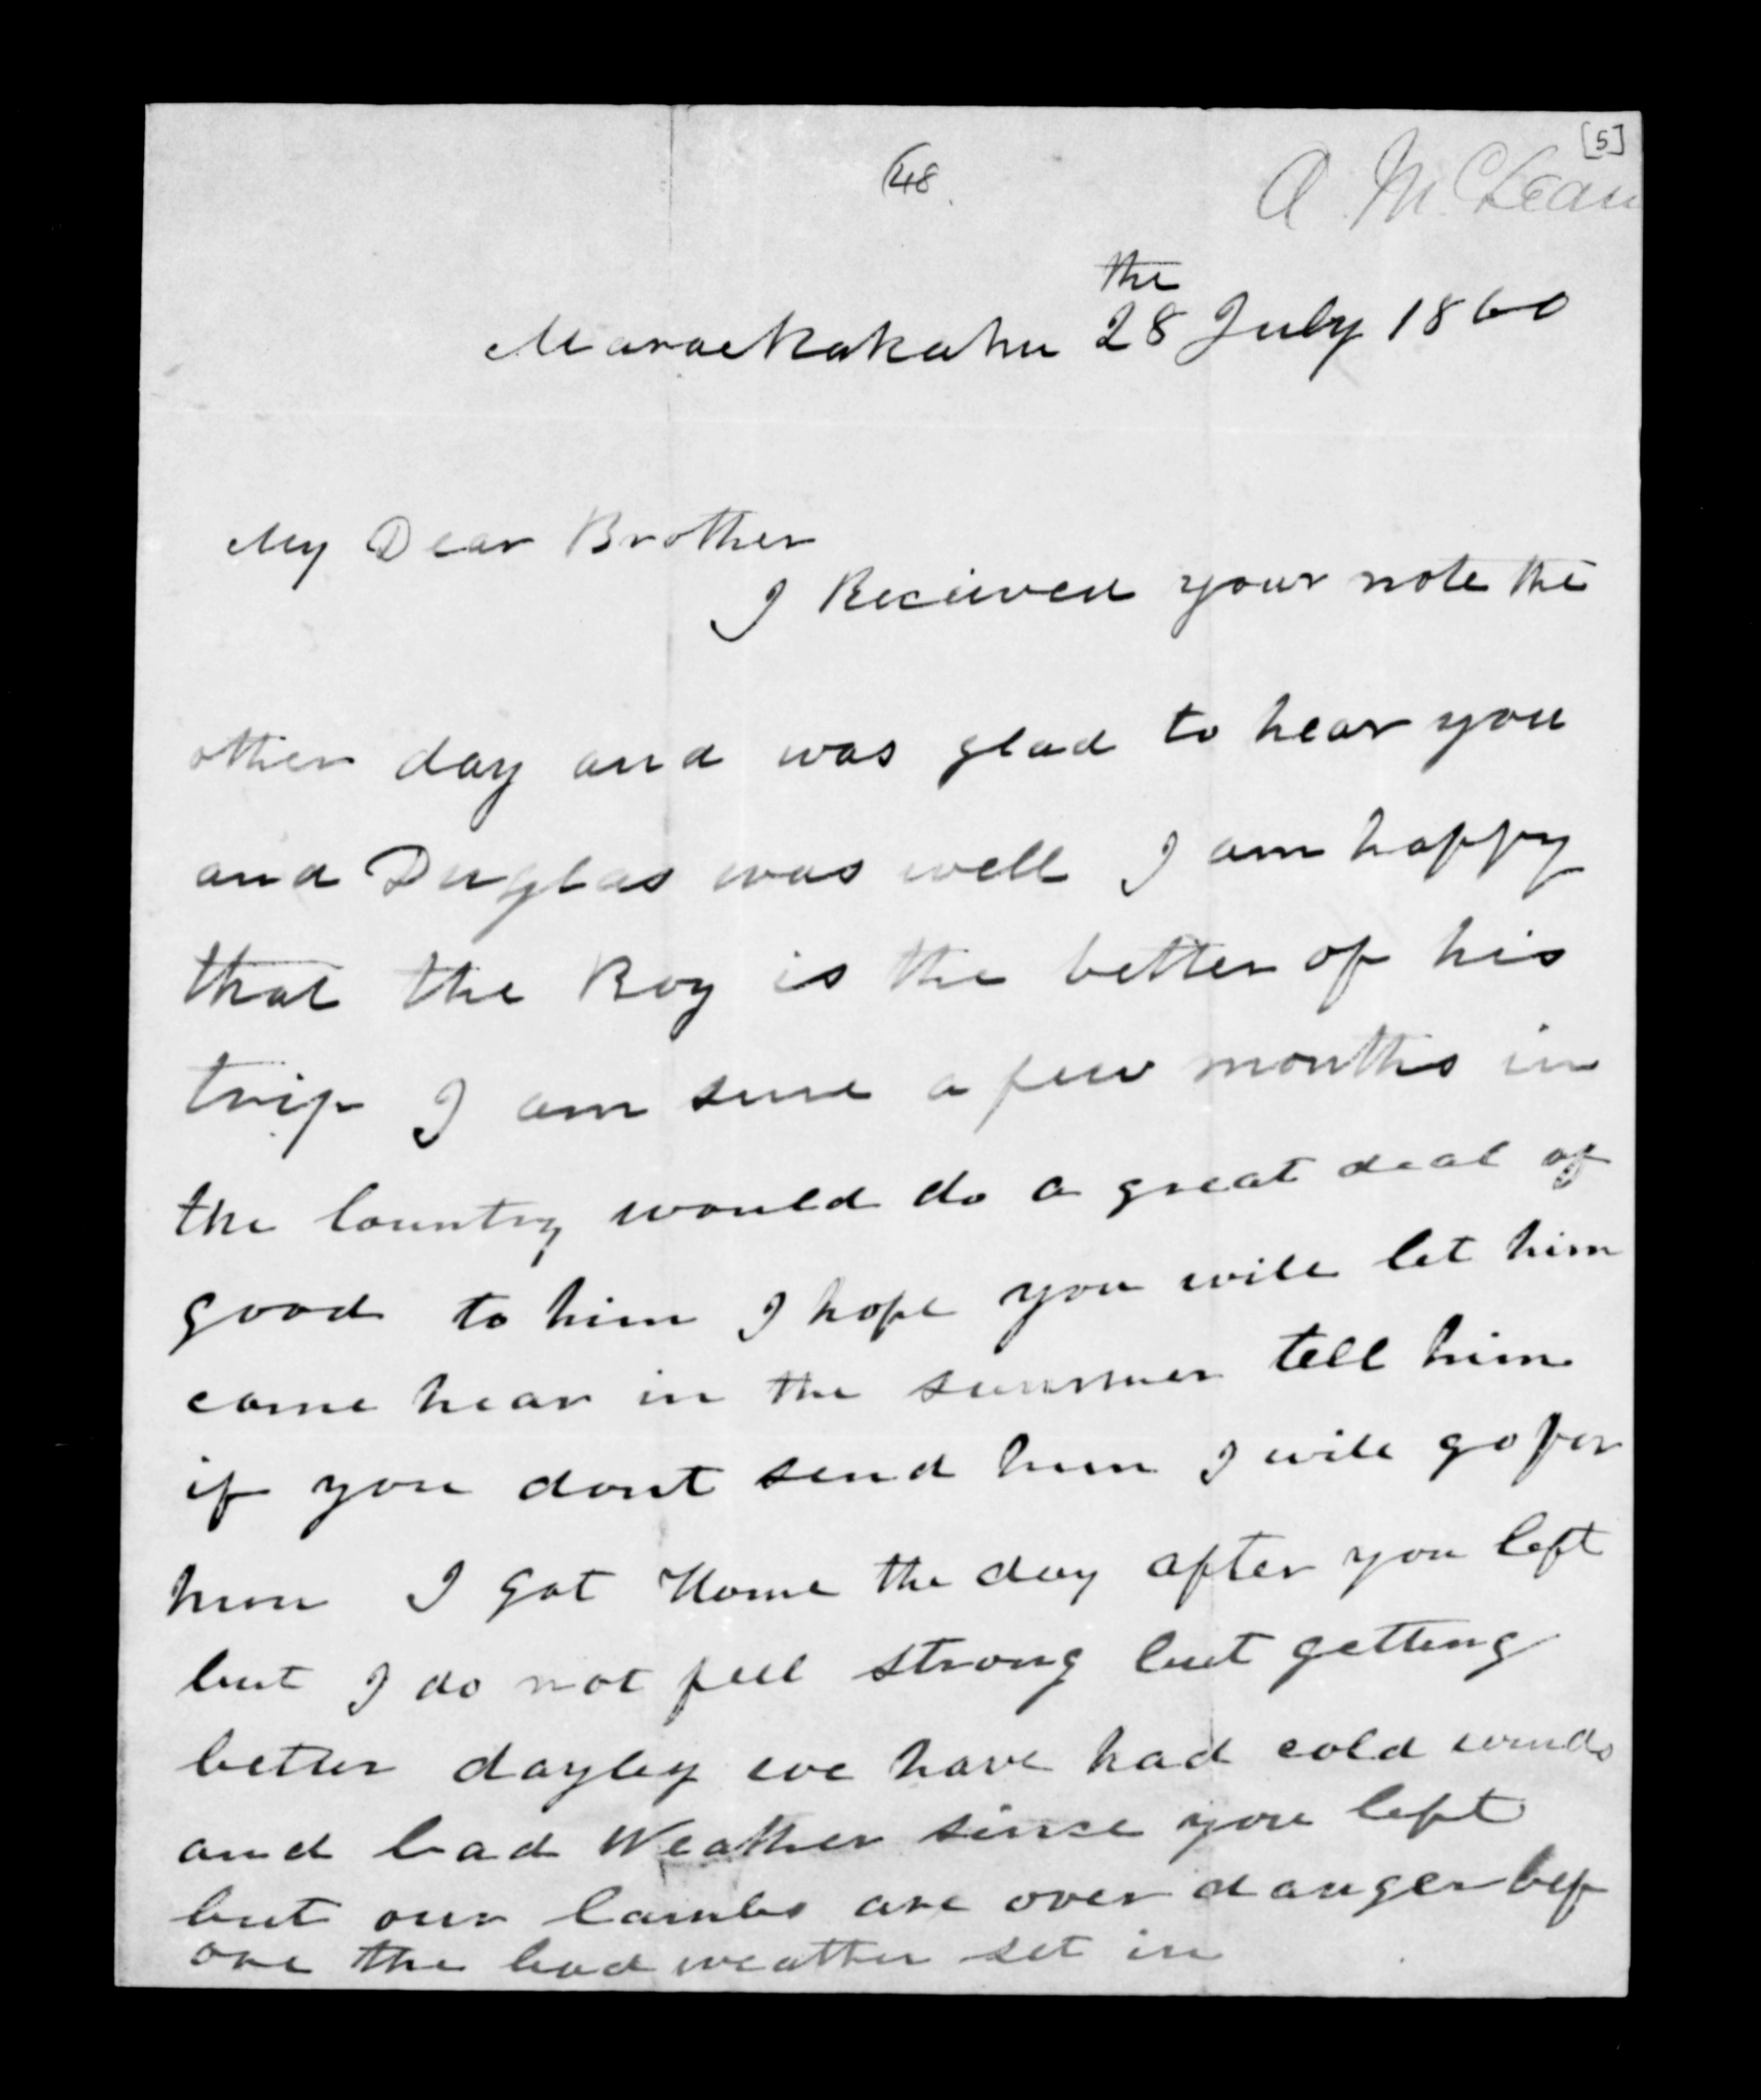 [5]
(48.
A. McLean
the
Maraekakahu 28 July 1860
My Dear Brother
I Recieved your note the
other day and was glad to hear you
and Duglas was well I am happy
that the Boy is the better of his
trip I am sure a few months in
the Country would do a great deal of
good to him I hope you will let him
come hear in the summer tell him
if you dont send him I will go for
him I got Home the day after you left
but I do not feel strong but getting
better dayley we have had cold winds
and bad Weather since you left
but our lambs are over danger bef
ore the bad weather set in